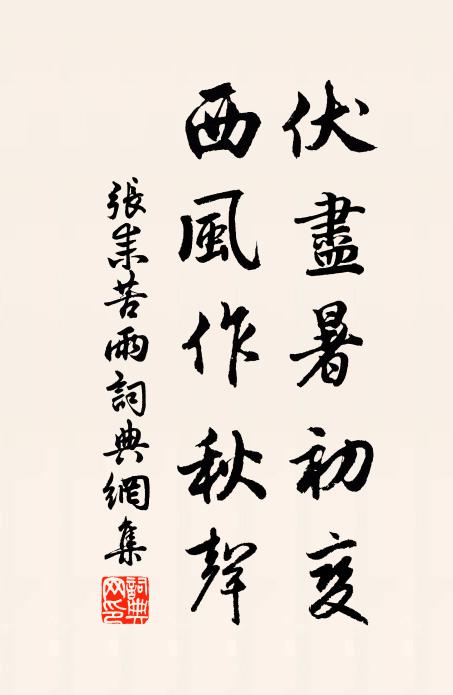 伏盡暑初变
西風作秋聲
張耒苦雨詞典網集
詞典网印